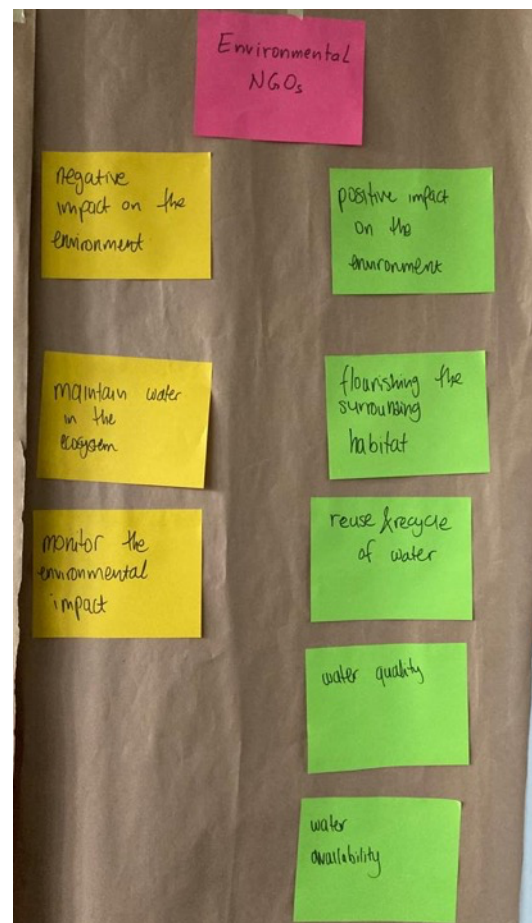 Environmental
NGOs
negative
impact on the
environment
maintain water
in the
ecosystem
monitor the
environmental
impact
positive impact
on the
environment
flourishing the
surrounding
habitat
reuse & recycle
of water
water quality
water
availability